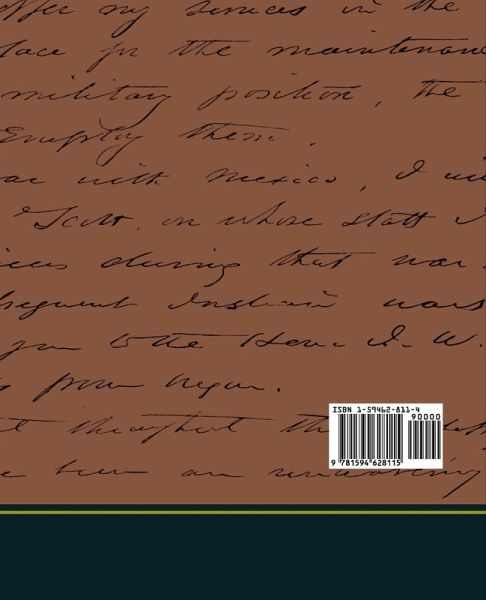 offer my services in the
place for the maintenance
military position, the
Employ them.
war with Mexico, I
Scott, on whose staff I
during that war.
subsequent Indian wars
you to the Hon. J. W.
from
throughout the
been an unwavering
ISBN 1-59462-811-4
90000
9 781594 628115